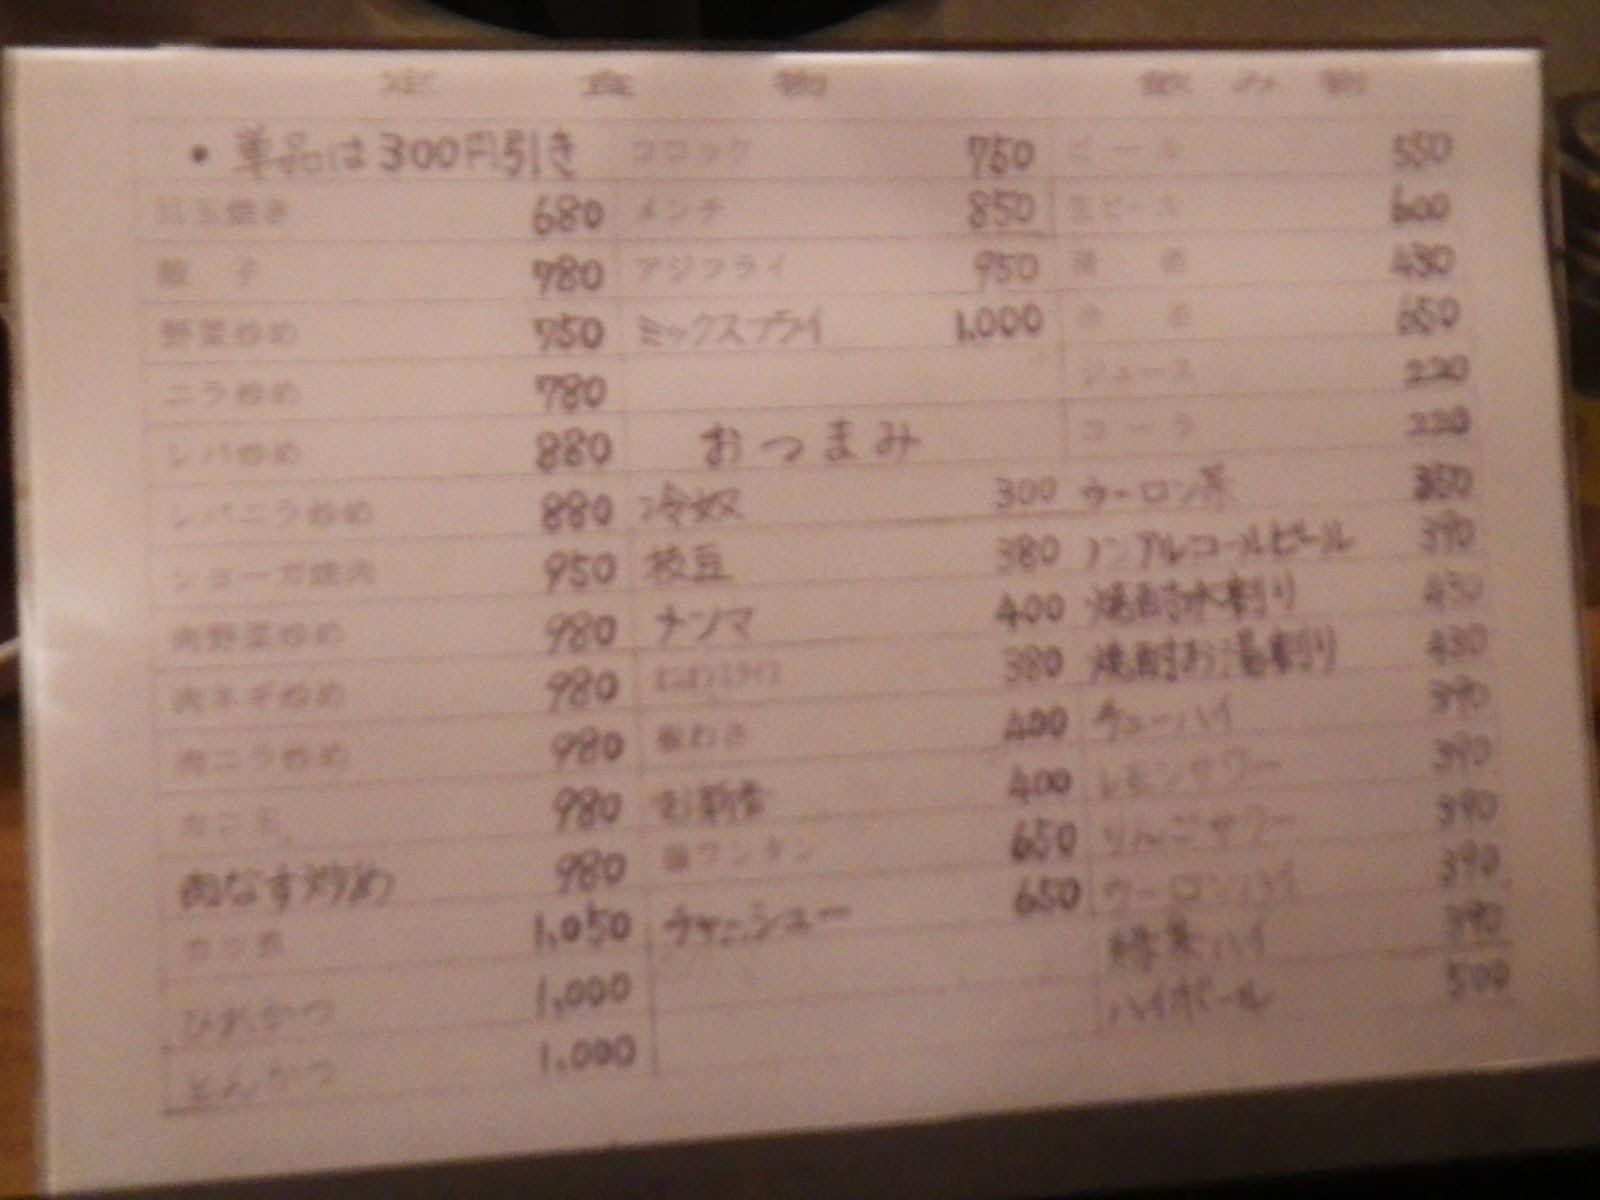 定食物
・単品は300円引き
目玉焼き 680
餃子 780
野菜炒め 750
ニラ炒め 780
レバ炒め 880
レバニラ炒め 880
ショーガ焼肉 950
肉野菜炒め 980
肉ネギ炒め 980
肉ニラ炒め 980
カニ玉 980
肉なす炒め 980
カツ煮 1,050
ひれかつ 1,000
とんかつ 1,000
コロッケ 750
メンチ 850
アジフライ 950
ミックスフライ 1,000
おつまみ
冷奴 300
枝豆 380
ナンマ 400
380
板わさ 400
お新香 400
ワンタン 650
チャーシュー 650
飲み物
ビール 550
生ビール 600
酒 430
冷酒 650
ジュース 220
コーラ 220
ウーロン茶
ノンアルコールビール 390
焼酎水割り 430
焼酎お湯割り 430
チューハイ 390
レモンサワー 390
りんごサワー 390
ウーロンハイ 390
緑茶ハイ 390
ハイボール 500